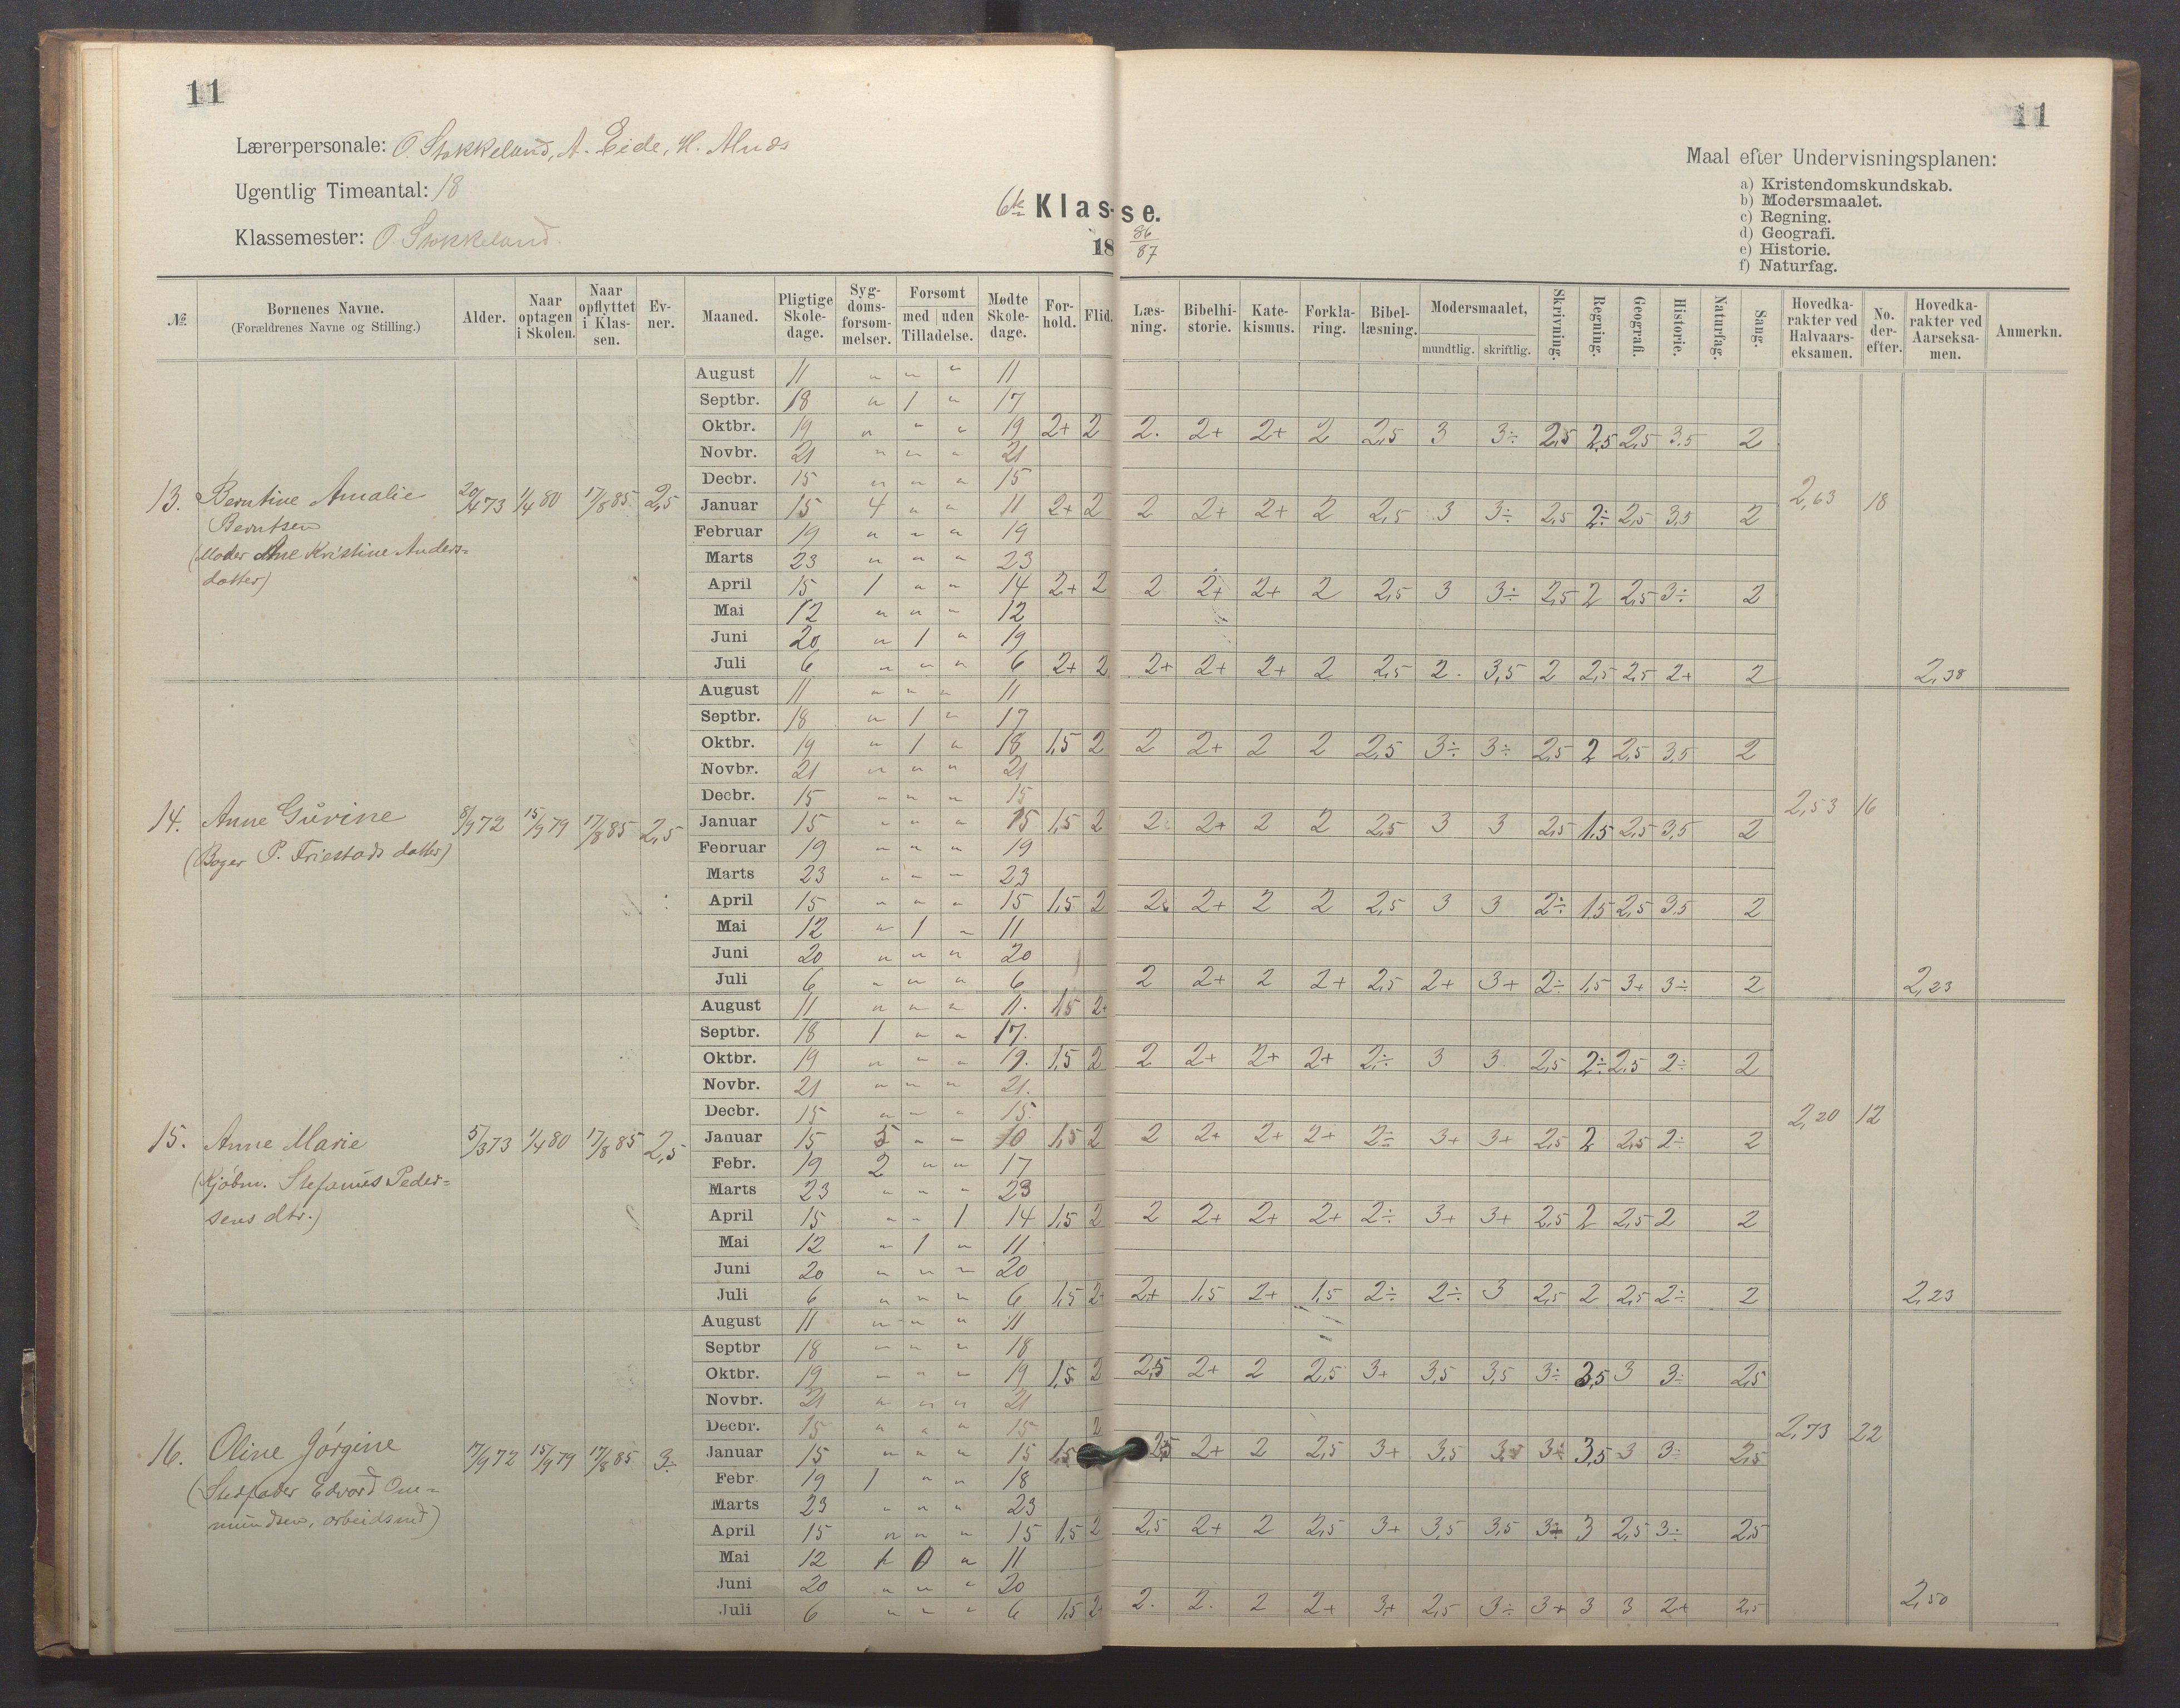 11
11
Lærerpersonale: O. Stokkeland, A. Eide, H. Alnes
Ugentlig Timeantal: 18
Klassemester: O. Stokkeland.
6te Klasse.
18 86/87
Maal efter Undervisningsplanen:
a) Kristendomskundskab.
b) Modersmaalet.
c) Regning.
d) Geografi.
e) Historie.
f) Naturfag.
№. Børnenes Navne. (Forældrenes Navne og Stilling.) Alder. Naar optagen i Skolen. Naar opflyttet i Klassen. Evner. Maaned. Pligtige Skoledage. Sygdomsforsømmelser. Forsømt med uden Tilladelse. Mødte Skoledage. Forhold. Flid. Læsning. Bibelhistorie. Katekismus. Forklaring. Bibellæsning. Modersmaalet, mundtlig. skriftlig. Skrivning. Regning. Geografi. Historie. Naturfag. Sang. Hovedkarakter ved Halvaarseksamen. No. derefter. Hovedkarakter ved Aarseksamen. Anmerkn.
13. Berntine Amalie Berntsen (Moder Ane Kristine Andersdatter) 20/4 73 1/4 80 17/8 85 2,5
August 11 " " " 11
Septbr. 18 " 1 " 17
Oktbr. 19 " " " 19 2+ 2 2. 2+ 2+ 2 2,5 3 3÷ 2,5 2,5 2,5 3,5 2
Novbr. 21 " " " 21
Decbr. 15 " " " 15
Januar 15 4 " " 11 2+ 2 2 2+ 2+ 2 2,5 3 3÷ 2,5 2÷ 2,5 3,5 2 2,63 18
Februar 19 " " " 19
Marts 23 " " " 23
April 15 1 " " 14 2+ 2 2 2+ 2+ 2 2,5 3 3÷ 2,5 2 2,5 3÷ 2
Mai 12 " " " 12
Juni 20 " 1 " 19
Juli 6 " " " 6 2+ 2 2+ 2+ 2+ 2 2,5 2. 3,5 2 2,5 2,5 2+ 2 2,38
14. Anne Gurine (Boger P. Friestads datter) 8/9 72 15/9 79 17/8 85 2,5
August 11 " " " 11
Septbr. 18 " 1 " 17
Oktbr. 19 " 1 " 18 1,5 2 2 2+ 2 2 2,5 3÷ 3÷ 2,5 2 2,5 3,5 2
Novbr. 21 " " " 21
Decbr. 15 " " " 15
Januar 15 " " " 15 1,5 2 2 2+ 2 2 2,5 3 3 2,5 1,5 2,5 3,5 2 2,53 16
Februar 19 " " " 19
Marts 23 " " " 23
April 15 " " " 15 1,5 2 2 2+ 2 2 2,5 3 3 2÷ 1,5 2,5 3,5 2
Mai 12 " 1 " 11
Juni 20 " " " 20
Juli 6 " " " 6 2 2+ 2 2+ 2,5 2+ 3+ 2÷ 1,5 3+ 3÷ 2 2,23
15. Anne Marie (Kjøbm. Stefanus Pedersens dtr.) 5/3 73 1/4 80 17/8 85 2,5
August 11 " " " 11. 1,5 2+
Septbr. 18 1 " " 17.
Oktbr. 19 " " " 19. 1,5 2 2 2+ 2+ 2+ 2÷ 3 3 2,5 2÷ 2,5 2÷ 2
Novbr. 21 " " " 21.
Decbr. 15 " " " 15.
Januar 15 5 " " 10 1,5 2 2 2+ 2+ 2+ 2÷ 3+ 3+ 2,5 2 2,5 2÷ 2 2,20 12
Febr. 19 2 " " 17
Marts 23 " " " 23
April 15 " " 1 14 1,5 2 2 2+ 2+ 2+ 2÷ 3+ 3+ 2,5 2 2,5 2 2
Mai 12 " 1 " 11
Juni 20 " " " 20
Juli 6 " " " 6 1,5 2+ 2+ 1,5 2+ 1,5 2÷ 2÷ 3 2,5 2 2,5 2÷ 2 2,23
16. Oline Jørgine (Stedfader Edvard Ommundsen, arbeidsmd) 17/9 72 15/9 79 17/8 85 3÷
August 11 " " " 11
Septbr 18 " " " 18
Oktbr. 19 " " " 19 1,5 2 2,5 2+ 2 2,5 3+ 3,5 3,5 3÷ 3,5 3 3÷ 2,5
Novbr. 21 " " " 21
Decbr. 15 " " " 15 2
Januar 15 " " " 15 1,5 2,5 2+ 2 2,5 3+ 3,5 3,5 3÷ 3,5 3 3÷ 2,5 2,73 22
Febr 19 1 " " 18
Marts 23 " " " 23
April 15 " " " 15 1,5 2 2,5 2+ 2 2,5 3+ 3,5 3,5 3÷ 3 2,5 3÷ 2,5
Mai 12 " 11
Juni 20 " " " 20
Juli 6 " " " 6 1,5 2+ 2. 2. 2 2+ 3+ 2,5 3÷ 3+ 3 3 2+ 2,5 2,50